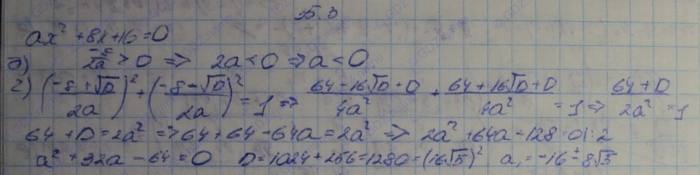 5.3
ax² + 8x + 16 = 0
-8/2a > 0 => 2a < 0 => a < 0
2) ((-8 + √D)/2a)² + ((-8 - √D)/2a)² = 1 => (64 - 16√D + D)/4a² + (64 + 16√D + D)/4a² = 1 => (64 + D)/2a² = 1
64 + D = 2a² => 64 + 64 - 64a = 2a² => 2a² + 64a - 128 = 0 |: 2
a² + 32a - 64 = 0 D = 1024 + 256 = 1280 = (16√5)² a, = -16 ± 8√5